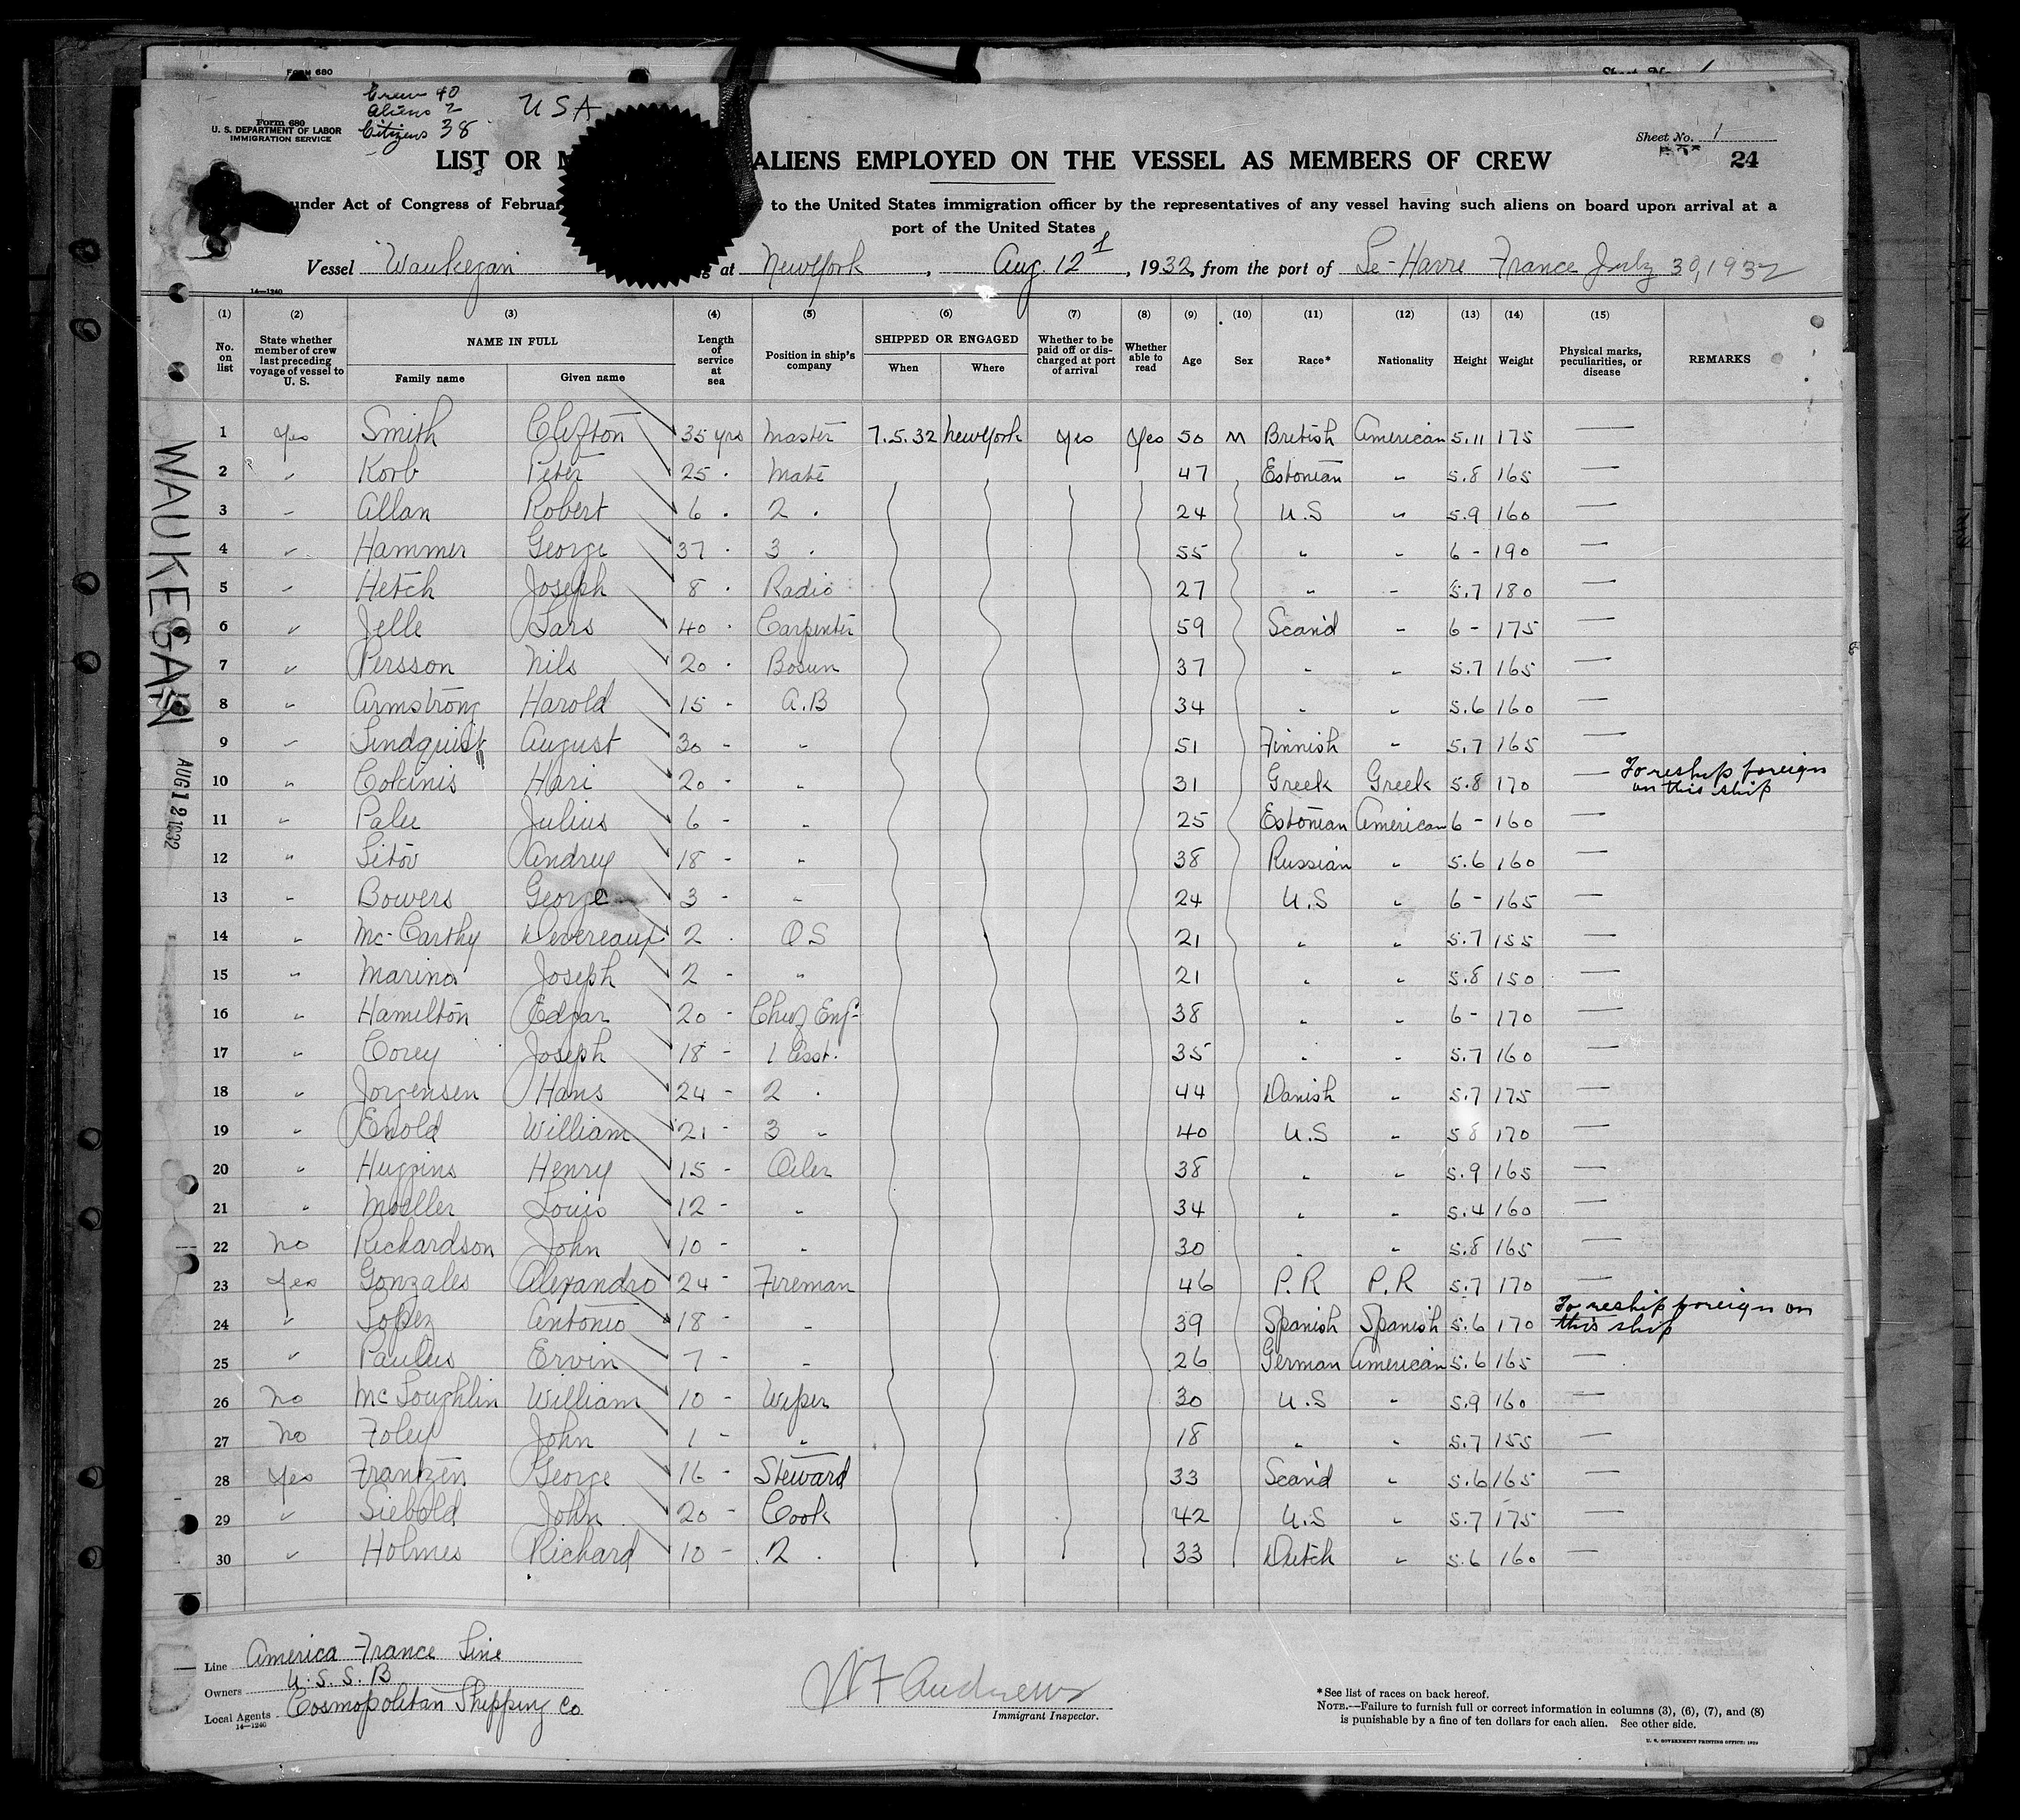 FORM 680
Crew 40
Aliens 2
Citizens 38
USA
Form 680
U. S. DEPARTMENT OF LABOR
IMMIGRATION SERVICE
Sheet No. 1
24
LIST OR ALIENS EMPLOYED ON THE VESSEL AS MEMBERS OF CREW
under Act of Congress of to the United States immigration officer by the representatives of any vessel having such aliens on board upon arrival at a
port of the United States
Vessel Waukegan at New York, Aug. 12, 1932, from the port of Le-Havre France July 30, 1932
14—1240
(1) (2) (3) (4) (5) (6) (7) (8) (9) (10) (11) (12) (13) (14) (15)
No. on list State whether member of crew last preceding voyage of vessel to U. S. NAME IN FULL Family name Given name Length of service at sea Position in ship's company SHIPPED OR ENGAGED When Where Whether to be paid off or discharged at port of arrival Whether able to read Age Sex Race* Nationality Height Weight Physical marks, peculiarities, or disease REMARKS
1 Yes Smith Clifton 35 yrs Master 7.5.32 New York Yes Yes 50 M British American 5.11 175 —
2 " Korb Peter 25 " Mate 47 Estonian " 5.8 165 —
3 " Allan Robert 6 " 2 " 24 U.S " 5.9 160 —
4 " Hammer George 37 " 3 " 55 " " 6 - 190 —
5 " Hetch Joseph 8 " Radio 27 " " 5.7 180 —
6 " Jelle Lars 40 " Carpenter 59 Scand " 6 - 175 —
7 " Persson Nils 20 " Bosun 37 " " 5.7 165 —
8 " Armstrong Harold 15 " A.B 34 " " 5.6 160 —
9 " Lindquist August 30 " " 51 Finnish " 5.7 165 —
10 " Cokinis Hari 20 " " 31 Greek Greek 5.8 170 — To reship foreign on this ship
11 " Palu Julius 6 " " 25 Estonian American 6 - 160 —
12 " Sitov Andrey 18 " " 38 Russian " 5.6 160 —
13 " Bowers George 3 " " 24 U.S " 6 - 165 —
14 " Mc-Carthy Devereaux 2 " OS 21 " " 5.7 155 —
15 " Marino Joseph 2 " " 21 " " 5.8 150 —
16 " Hamilton Edgar 20 " Chief Eng- 38 " " 6 - 170 —
17 " Corey Joseph 18 " 1 Asst. 35 " " 5.7 160 —
18 " Jorgensen Hans 24 " 2 " 44 Danish " 5.7 175 —
19 " William 21 " 3 " 40 U.S " 5 8 170 —
20 " Huggins Henry 15 " Oiler 38 " " 5.9 165 —
21 " Moeller Louis 12 " " 34 " " 5.4 160 —
22 No Richardson John 10 " " 30 " " 5.8 165 —
23 Yes Gonzales Alexandro 24 " Fireman 46 P.R P.R 5.7 170 —
24 " Lopez Antonio 18 " " 39 Spanish Spanish 5.6 170 To reship foreign on this ship
25 " Paulus Ervin 7 " " 26 German American 5.6 165 —
26 No McLoughlin William 10 " Wiper 30 U.S " 5.9 160 —
27 No Foley John 1 " " 18 " " 5.7 155 —
28 Yes Frantzen George 16 " Steward 33 Scand " 5.6 165 —
29 " Siebold John 20 " Cook 42 U.S " 5.7 175 —
30 " Holmes Richard 10 " 2 " 33 Dutch " 5.6 160 —
WAUKEGAN
AUG 12 1932
Line America France Line
Owners U.S.S.B
Local Agents Cosmopolitan Shipping Co
14—1240
W F Andrews
Immigrant Inspector.
*See list of races on back hereof.
NOTE.—Failure to furnish full or correct information in columns (3), (6), (7), and (8)
is punishable by a fine of ten dollars for each alien. See other side.
U. S. GOVERNMENT PRINTING OFFICE: 1929